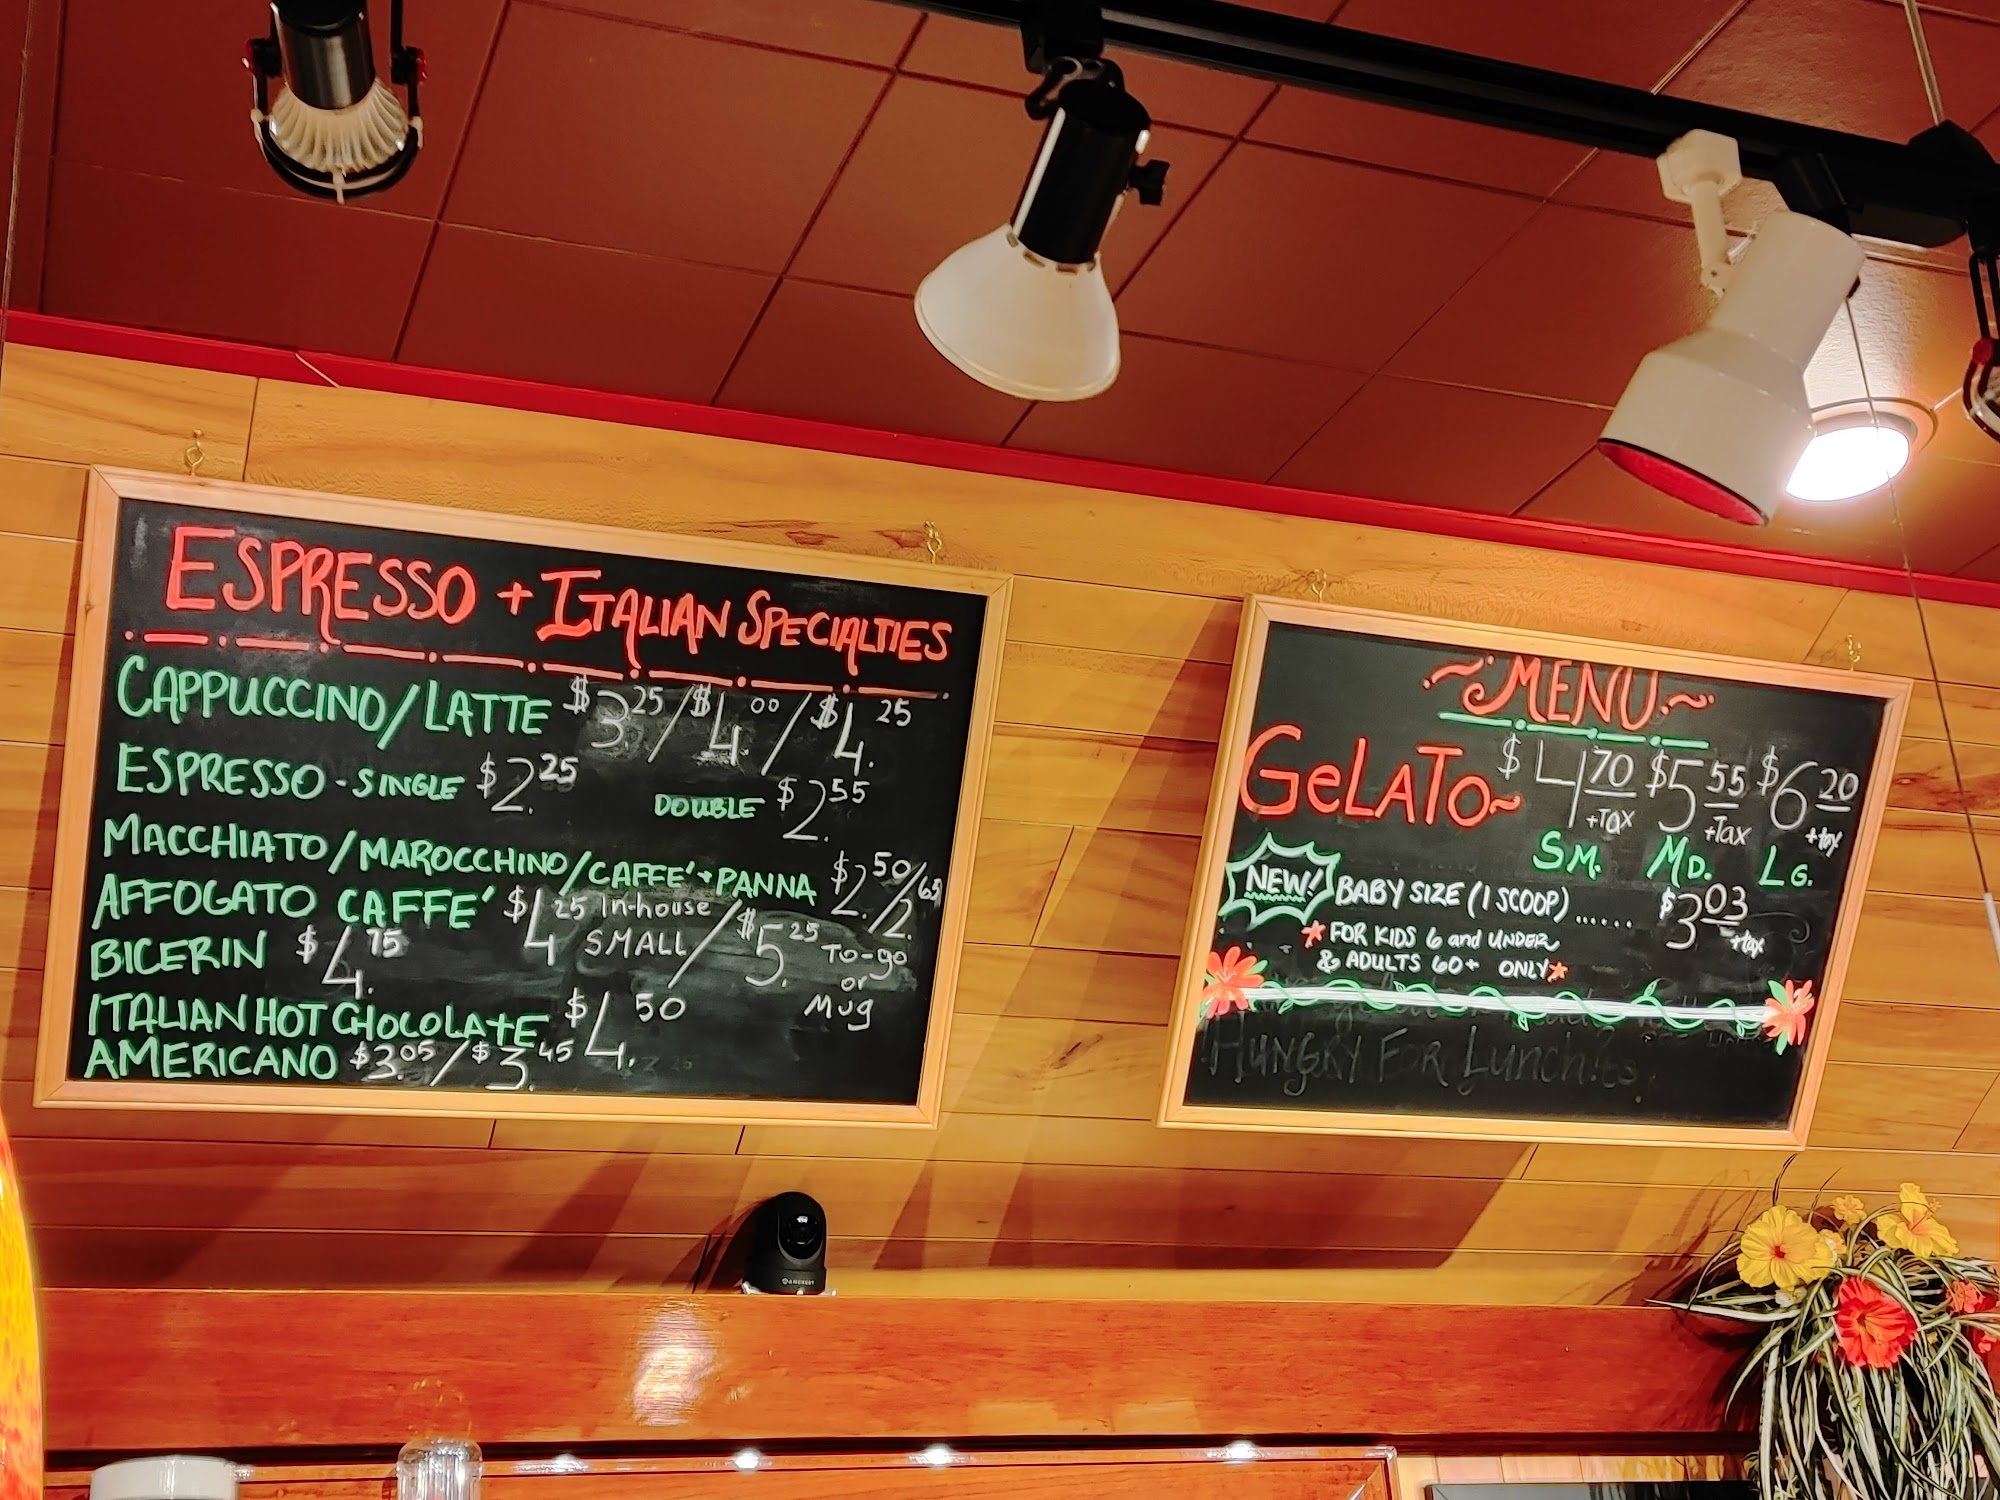 ESPRESSO + ITALIAN SPECIALTIES
CAPPUCCINO/LATTE $3.25/$4.00/$4.25
ESPRESSO - SINGLE $2.25 DOUBLE $2.55
MACCHIATO/MAROCCHINO/CAFFE'+PANNA $2.50/2.65
AFFOGATO CAFFE' $4.25 In-house SMALL/$5.25 To-go or Mug
BICERIN $4.75
ITALIAN HOT CHOCOLATE $4.50
AMERICANO $3.05/$3.45
~MENU~
GeLATO~ $4.70 +Tax $5.55 +Tax $6.20 +tax
SM. MD. LG.
NEW! BABY SIZE (1 SCOOP)...... $3.03 +tax
*FOR KIDS 6 and UNDER
& ADULTS 60+ ONLY*
HUNGRY FOR Lunch
AMCREST